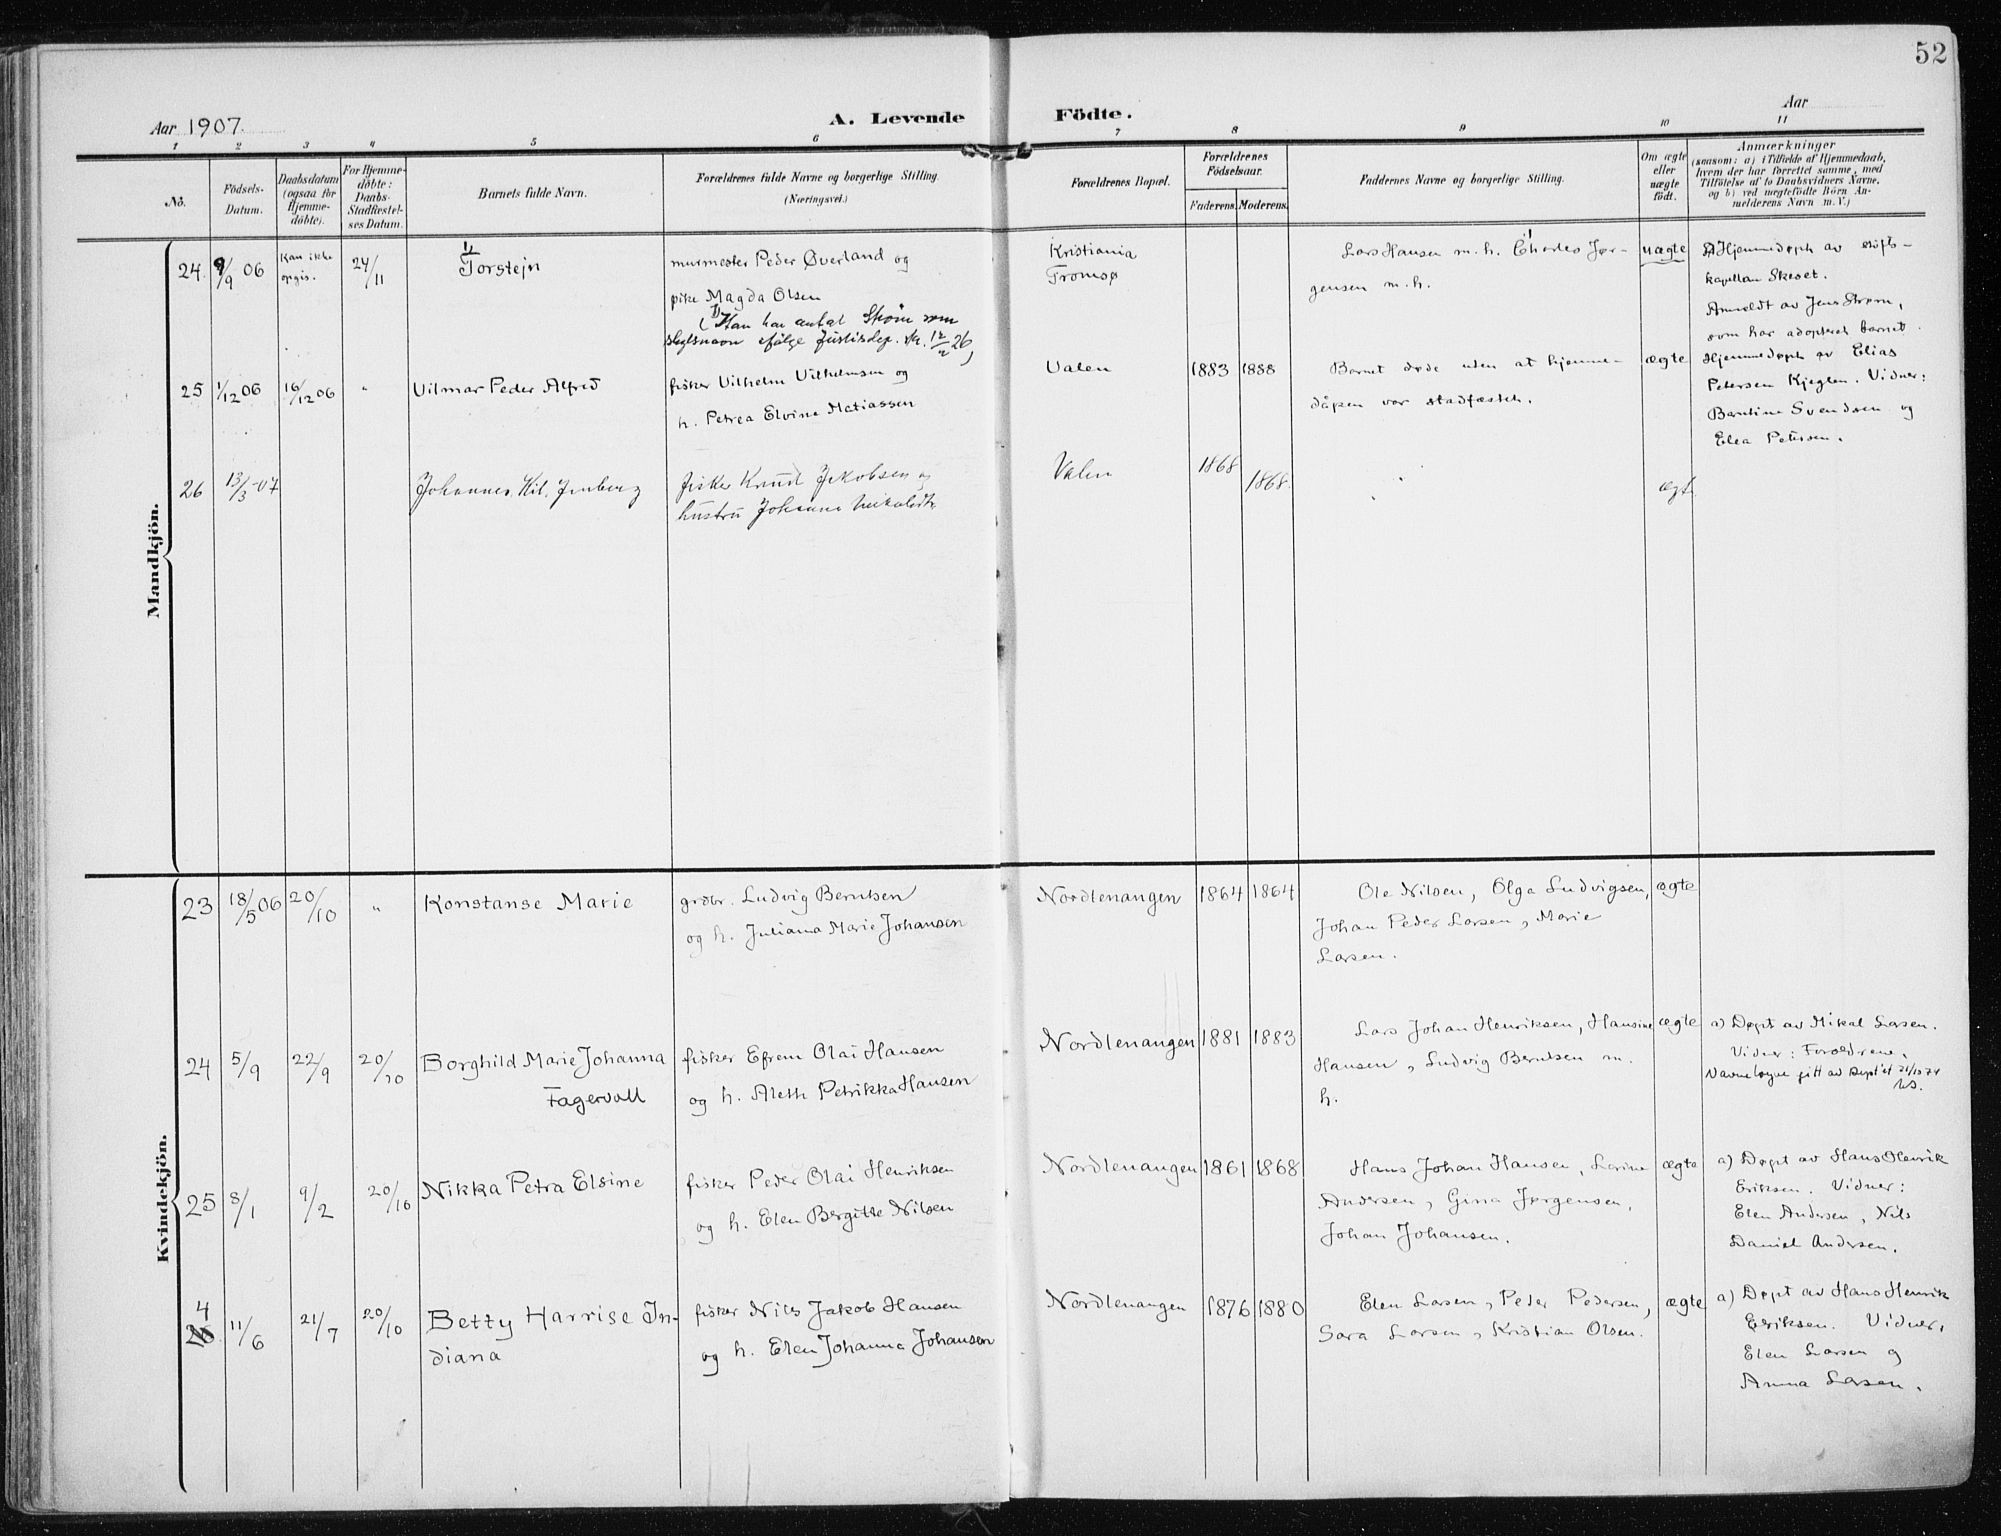 52
Aar 1907.
A. Levende Födte.
Aar
1 2 3 4 5 6 7 8 9 10 11
No.
Födsels-
Datum.
Daabsdatum
(ogsaa for
Hjemme-
döbte).
For Hjemme-
döbte:
Daabs-
Stadfæstel-
ses Datum.
Barnets fulde Navn.
Forældrenes fulde Navne og borgerlige Stilling.
(Næringsvei.)
Forældrenes Bopæl.
Forældrenes
Födselsaar.
Faderens. Moderens.
Faddernes Navne og borgerlige Stilling.
Om ægte
eller
uægte
födt.
Anmærkninger
(saasom: a) i Tilfælde af Hjemmedaab,
hvem der har forrettet samme, med
Tilföielse af to Daabsvidners Navne,
og b) ved uægtefödte Börn An-
melderens Navn m. V.)
Mandkjön.
24. 9/9 06
Kan ikke
opgis.
24/11
1)
Torstejn
murmester Peder Øverland og
pike Magda Olsen
(1) Han har antat Strøm som
slegtsnavn ifølge Justisdep. sk. 12/2 26)
Kristiania
Tromsø
Lars Hansen m. h. Charles Jør-
gensen m. h.
uægte
Hjemmedøpt av stifts-
kapellan Skeset.
Anmeldt av Jens Strøm,
som har adopteret barnet.
25 1/12 06 16/12 06 "
Vilmar Peder Alfred
fisker Vilhelm Vilhelmsen og
h. Petrea Elvine Matiassen
Valen
1883 1888
Barnet døde uden at hjemme-
dåpen var stadfæstet.
ægte
Hjemmedøpt av Elias
Petersen Kjeglen. Vidner:
Berntine Svendsen og
Elea Petersen.
26 13/3-07
Johannes Hil. Jenberg
fisker Knud Jakobsen og
hustru Johanna
Valen
1868 1868.
ægt.
Kvindekjön.
23 18/5 06 20/10 "
Konstanse Marie
grdbr. Ludvig Berntsen
og h. Juliana Marie Johansen
Nordlenangen
1864 1864
Ole Nilsen, Olga Ludvigsen,
Johan Peder Larsen, Marie
Larsen.
ægte
24 5/9 22/9 20/10
Borghild Marie Johanna
Fagervoll
fisker Efrem Olai Hansen
og h. Aleth Petrikka Hansen
Nordlenangen
1881 1883
Lars Johan Henriksen, Hansine
Hansen, Ludvig Berntsen m.
h.
ægte
a) Døpt av Mikal Larsen.
Vidner: Forældrene.
Navnelogne gitt av Dept et 21/10 74
25 8/1 9/2 20/10
Nikka Petra Elsine
fisker Peder Olai Henriksen
og h. Elen Bergitte Nilsen
Nordlenangen
1861 1868
Hans Johan Hansen, Larine
Andersen, Gina Jørgensen,
Johan Johansen.
ægte
a) Døpt av Hans Henrik
Eriksen. Vidner:
Elen Andersen, Nils
Daniel Andersen.
4
26. 11/6 21/7 20/10
Betty Harrise In-
diana
fisker Nils Jakob Hansen
og h. Elen Johanna Johansen
Nordlenangen
1876 1880
Elen Larsen, Peder Pedersen,
Sara Larsen, Kristian Olsen.
ægte
a) Døpt av Hans Henrik
Eriksen. Vidner:
Elen Larsen og
Anna Larsen.